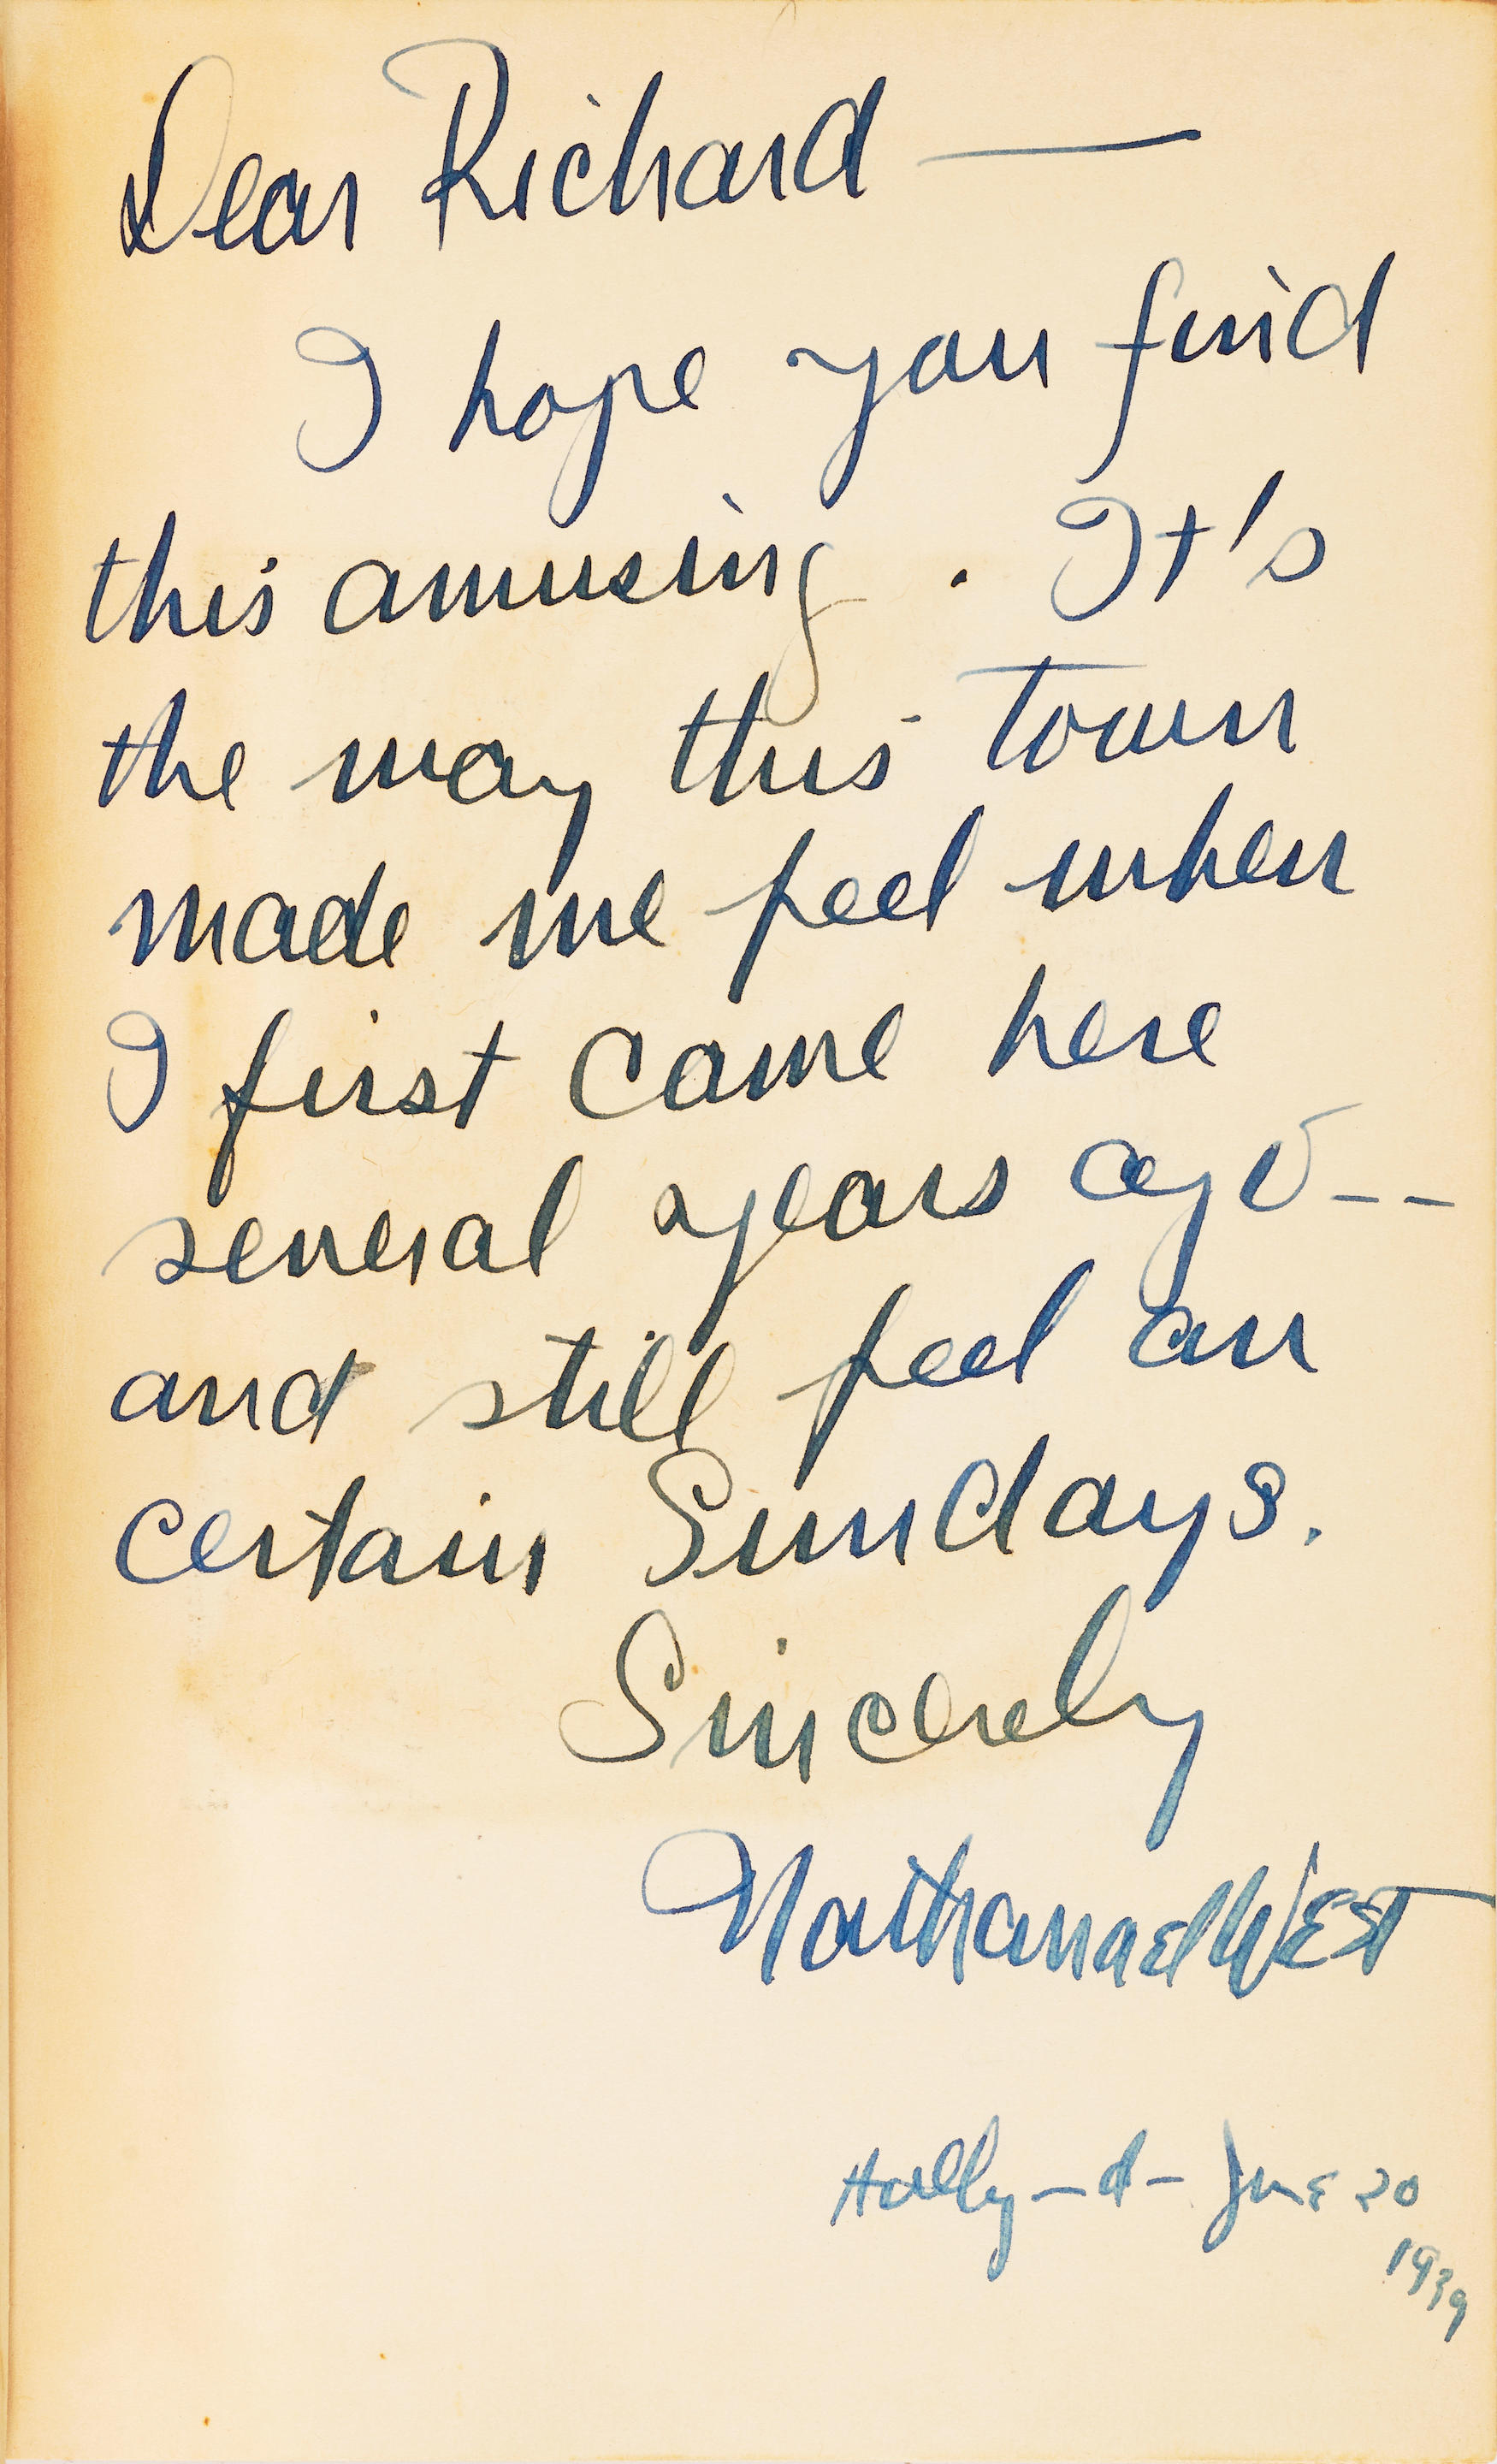 Dear Richard —
I hope you find
this amusing. It's
the way this town
made me feel when
I first came here
several years ago --
and still feel on
certain Sundays.
Sincerely
Nathanael West
Holly—d— June 20
1939